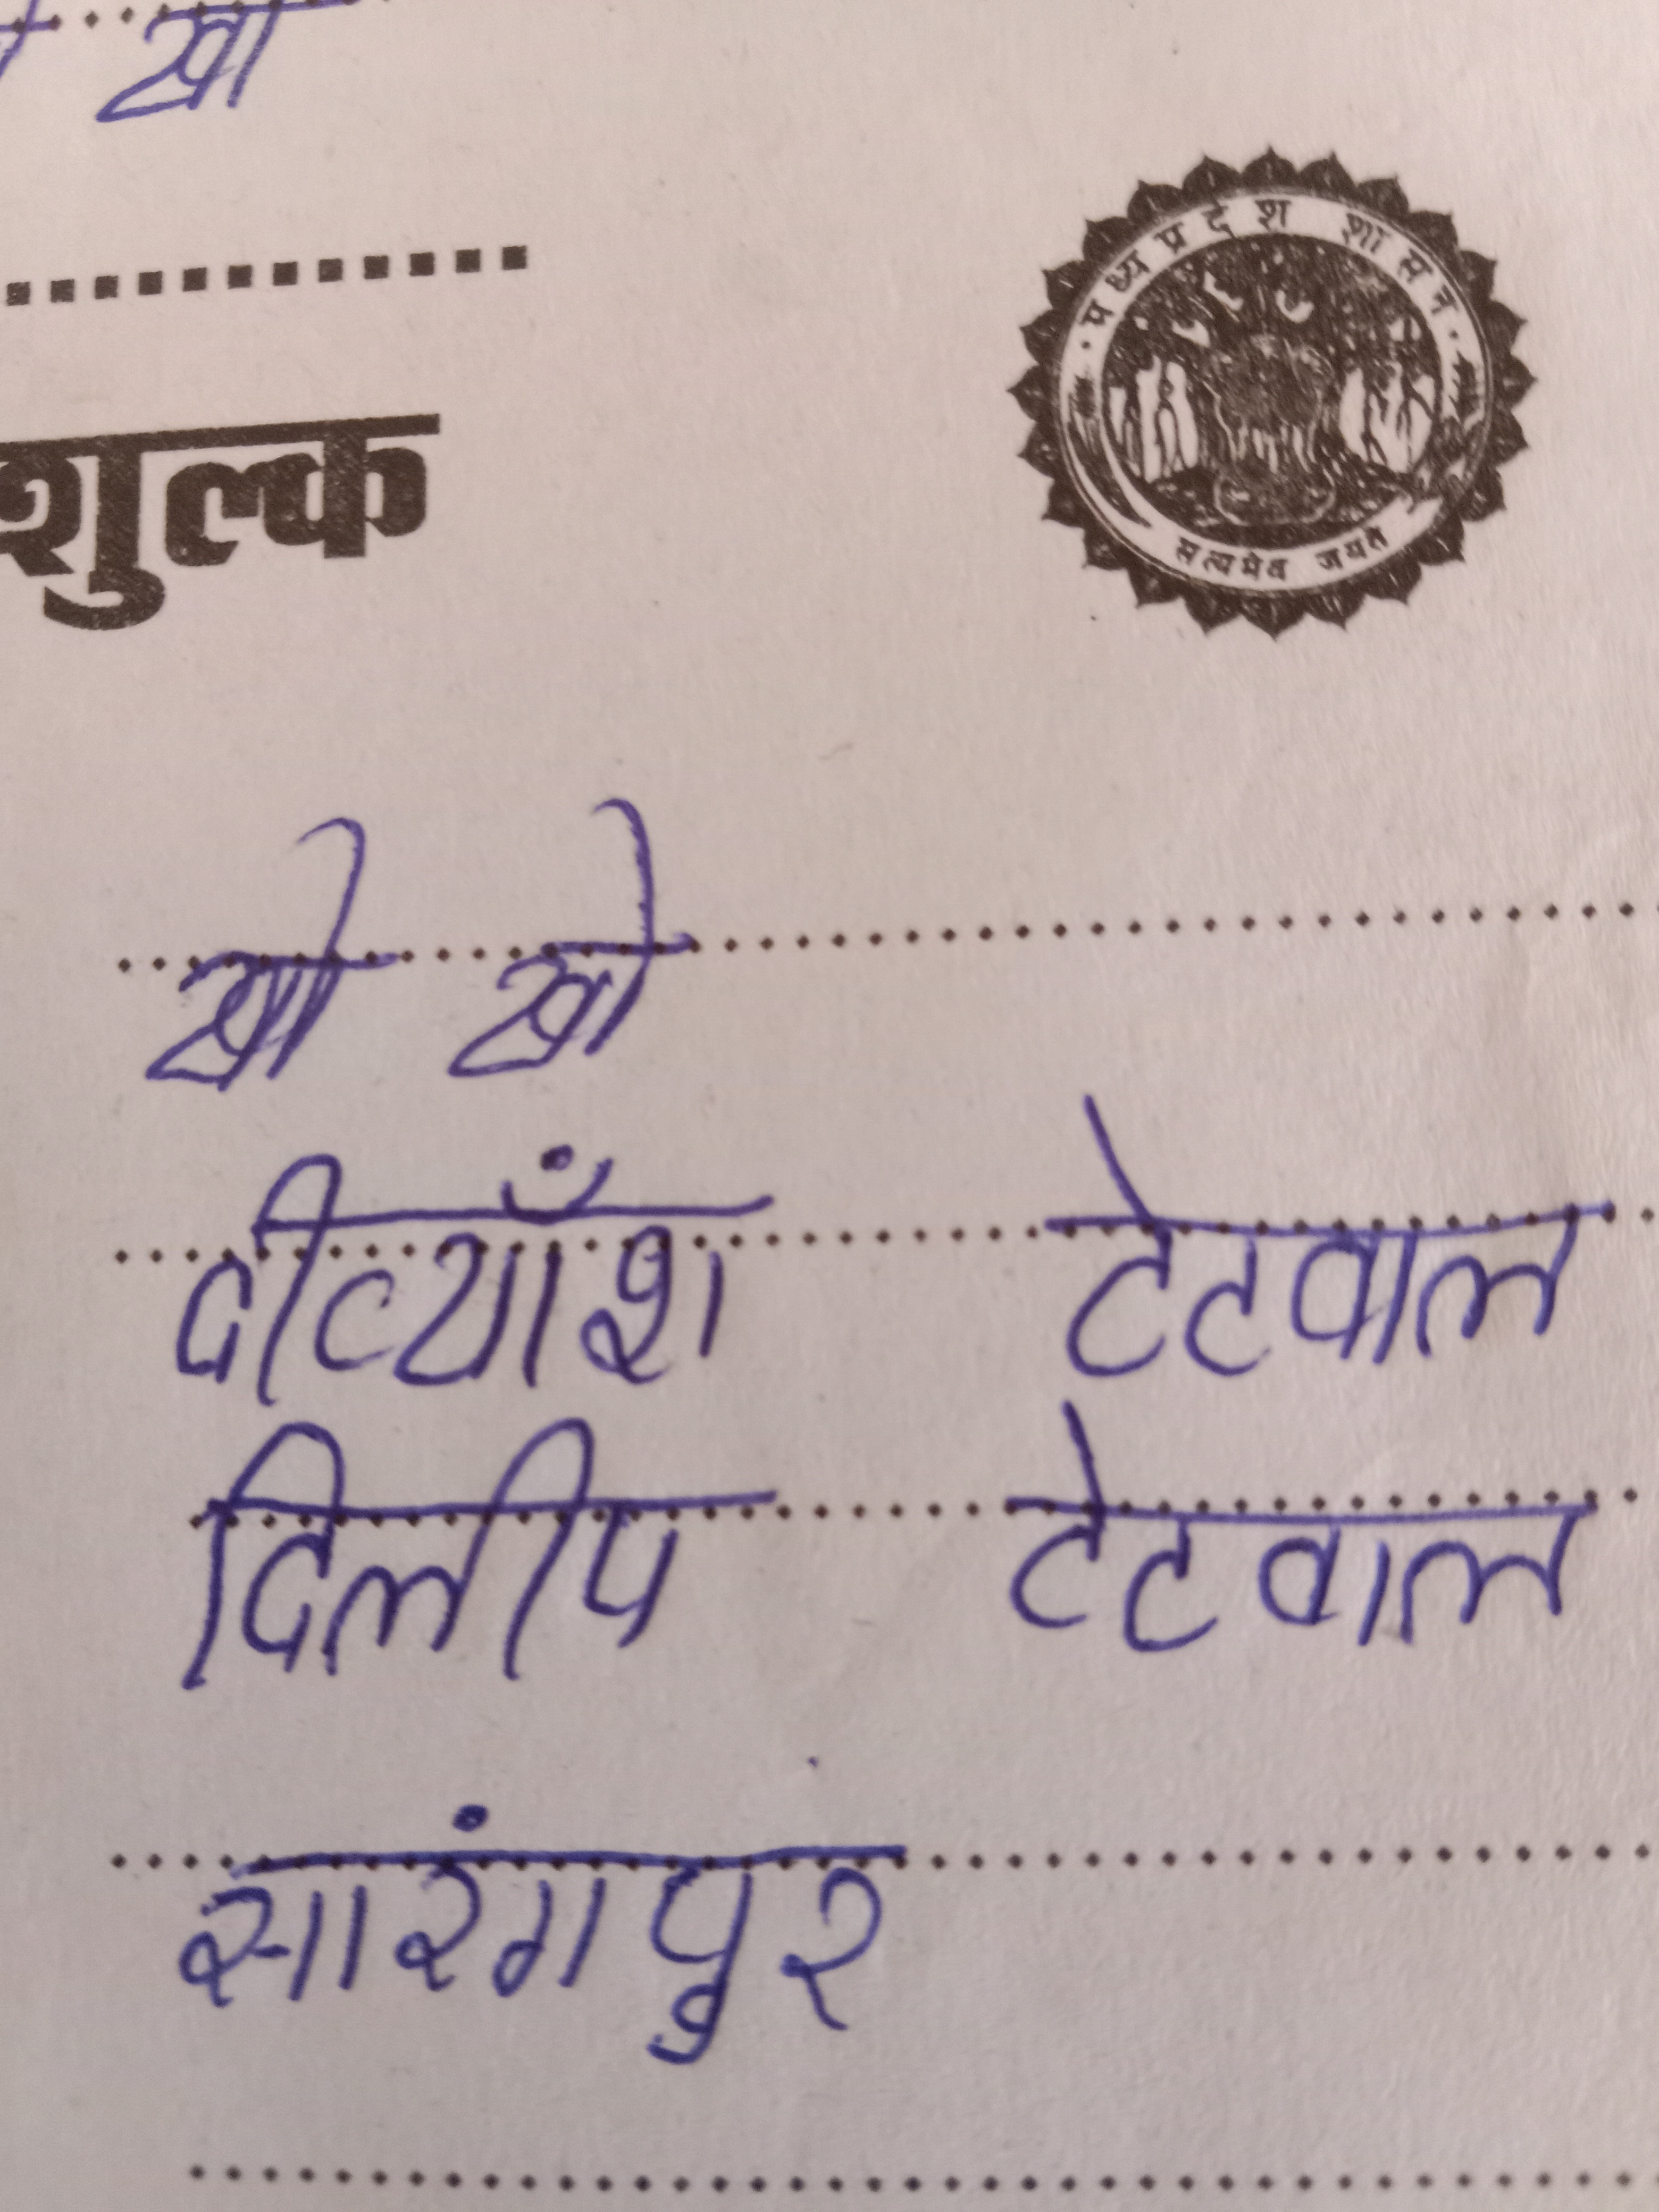 खो
शुल्क
मध्यप्रदेश शासन
सत्यमेव जयते
खो खो
दीव्याँश टेटवाल
दिलीप टेटवाल
सारंगपुर